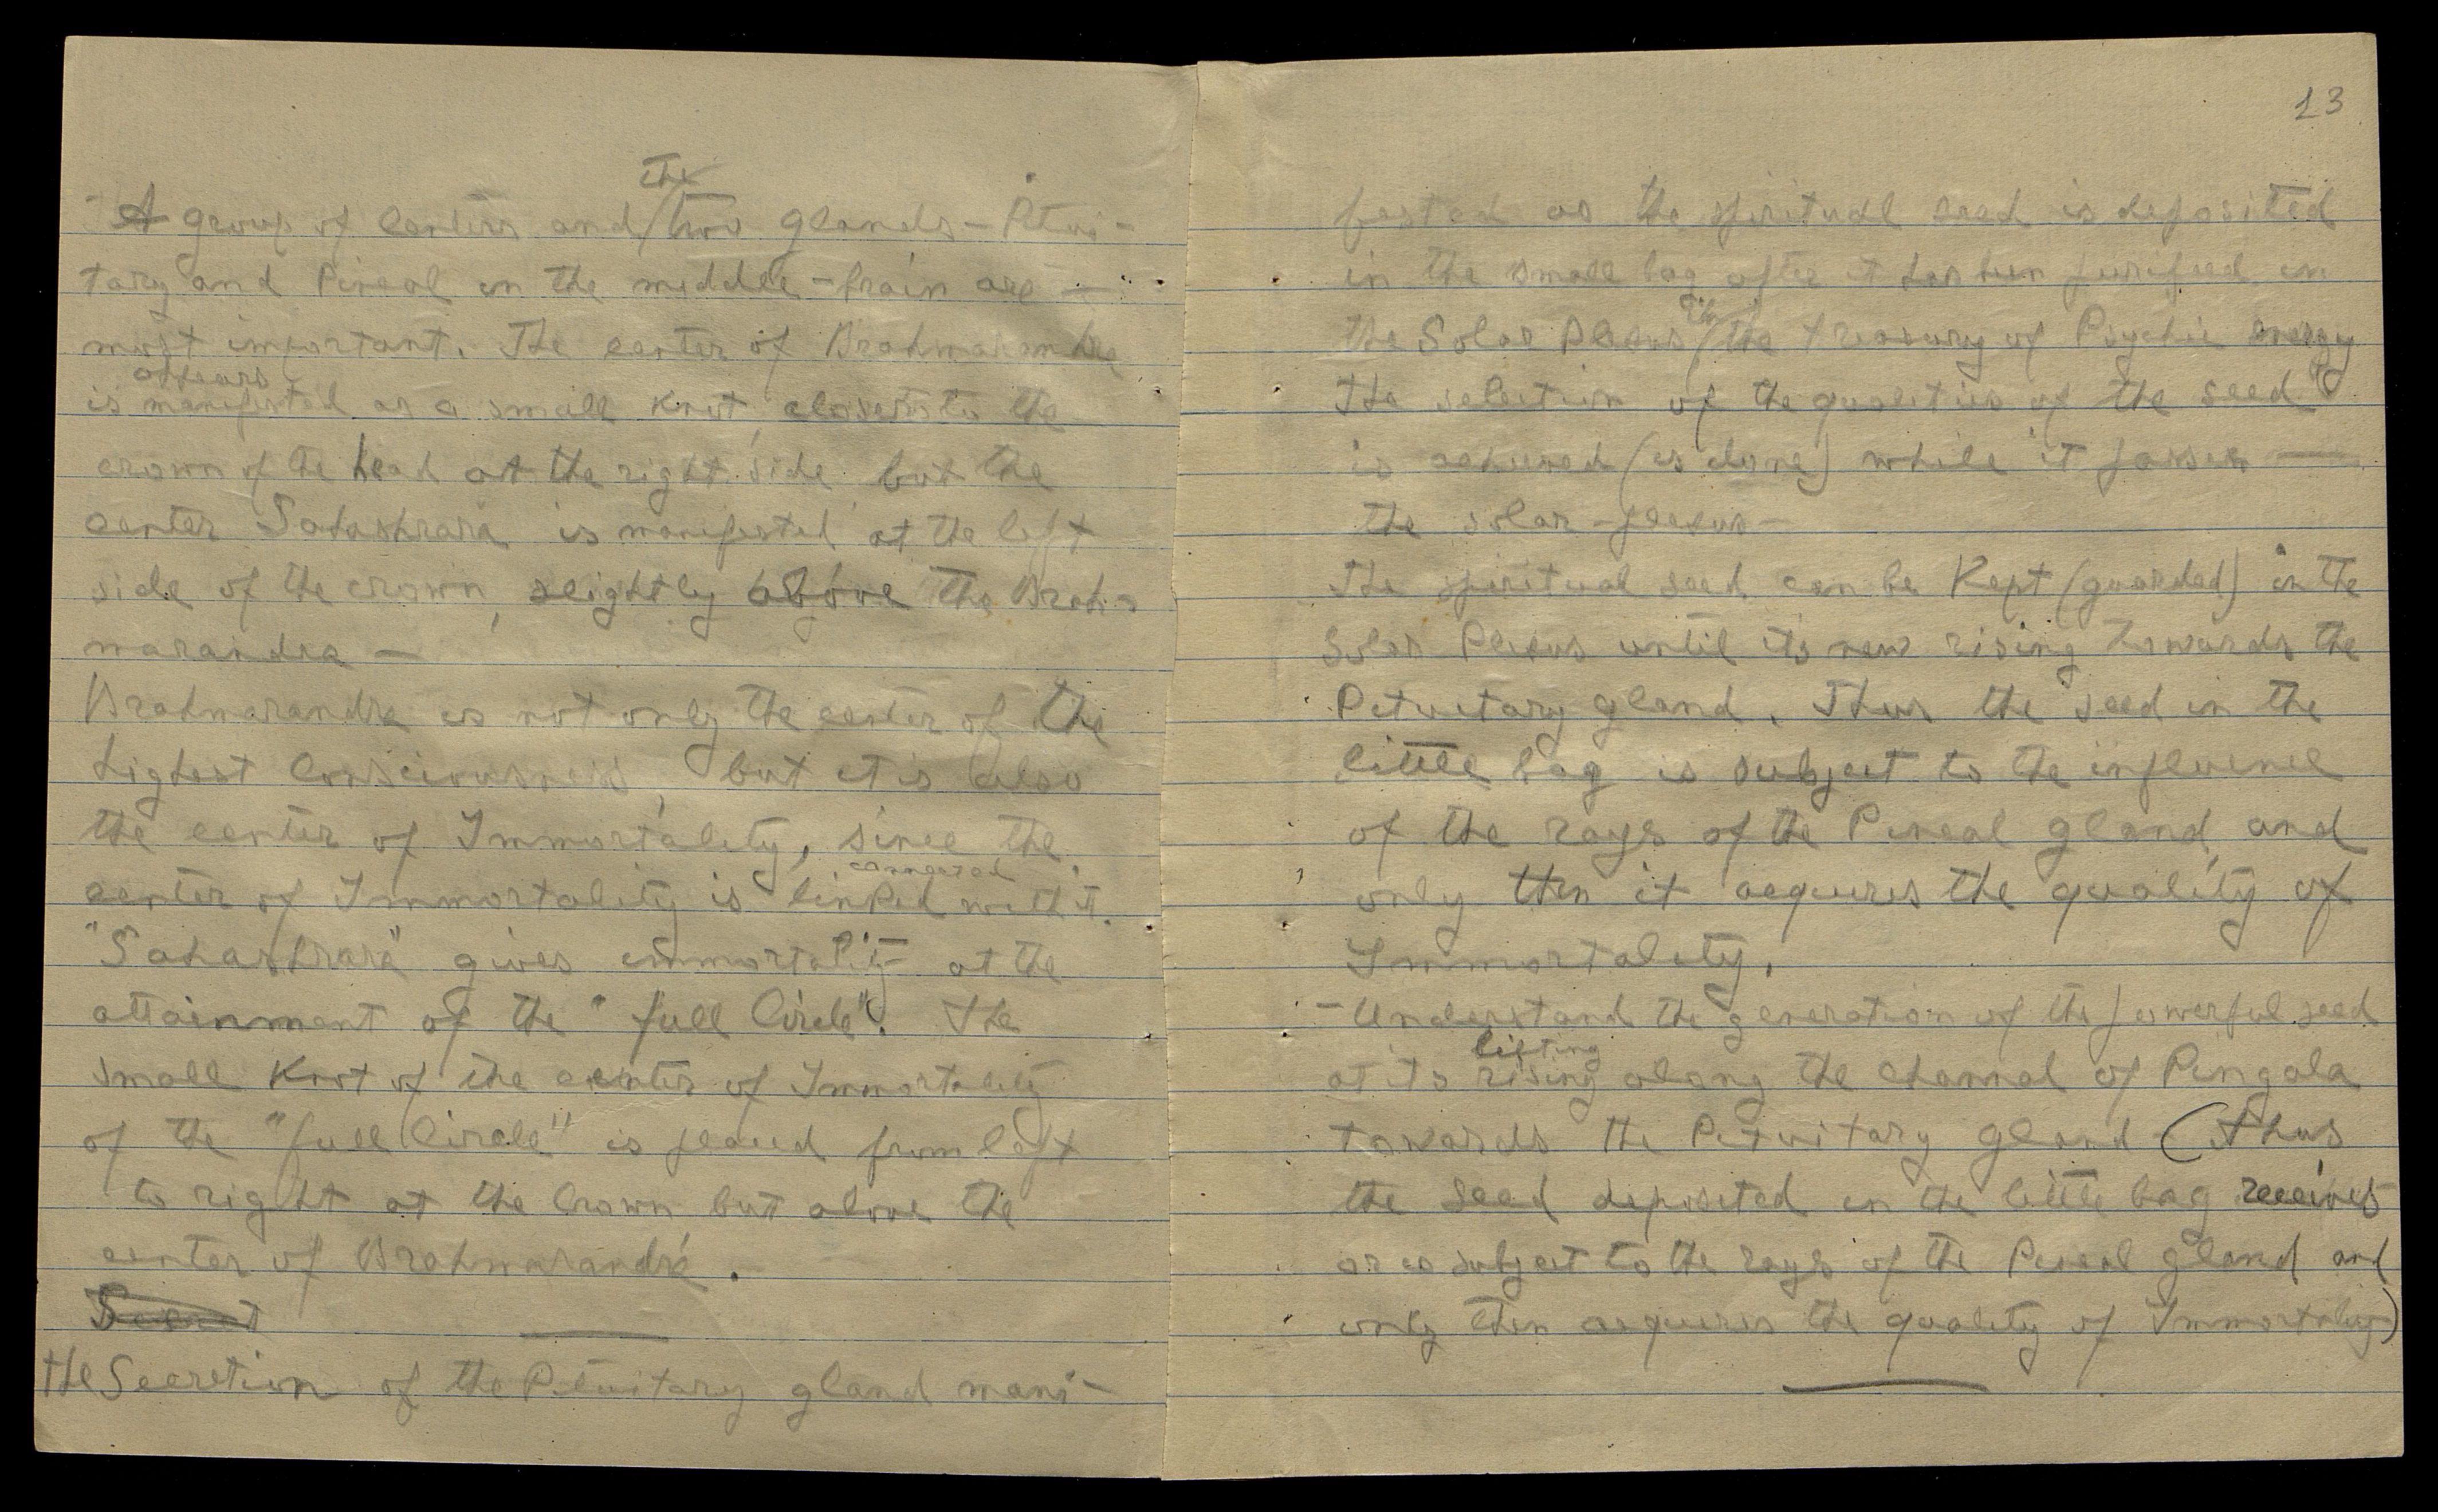 the
- A group of centers and two glands - Pitui-
tary and Pineal in the middle-brain are -
most important. The center of Brahmarandra
appears
is manifested as a small knot, closer to the
crown of the head at the right side but the
center Sahashrara is manifested at the left
side of the crown, slightly above the Brah-
marandra -
Brahmarandra is not only the center of the
highest Consciousness, but it is also
the center of Immortality, since the
connected
center of Immortality is linked with it.
"Sahashrara" gives immortality at the
attainment of the "full Circle". The
small Knot of the center of Immortality
of the "full Circle" is placed from left
to right at the Crown but above the
center of Brahmarandra.
Secret
the Secretion of the Pituitary gland mani-
13
fested as the spiritual seed is deposited
in the small bag after it has been purified in
the Solar Plexus the treasury of Psychic energy
The selection of the qualities of the seed
is achieved (is done) while it passes -
the solar-plexus -
The spiritual seed can be Kept (guarded) in the
Solar Plexus until its new rising towards the
Pituitary gland. Thus the seed in the
little bag is subject to the influence
of the rays of the Pineal gland, and
only then it acquires the quality of
Immortality.
- Understand the generation of the powerful seed
lifting
at its rising along the channel of Pingala
towards the Pituitary gland (thus
the seed deposited in the little bag receives
or is subject to the rays of the Pineal gland and
only then acquires the quality of Immortality)